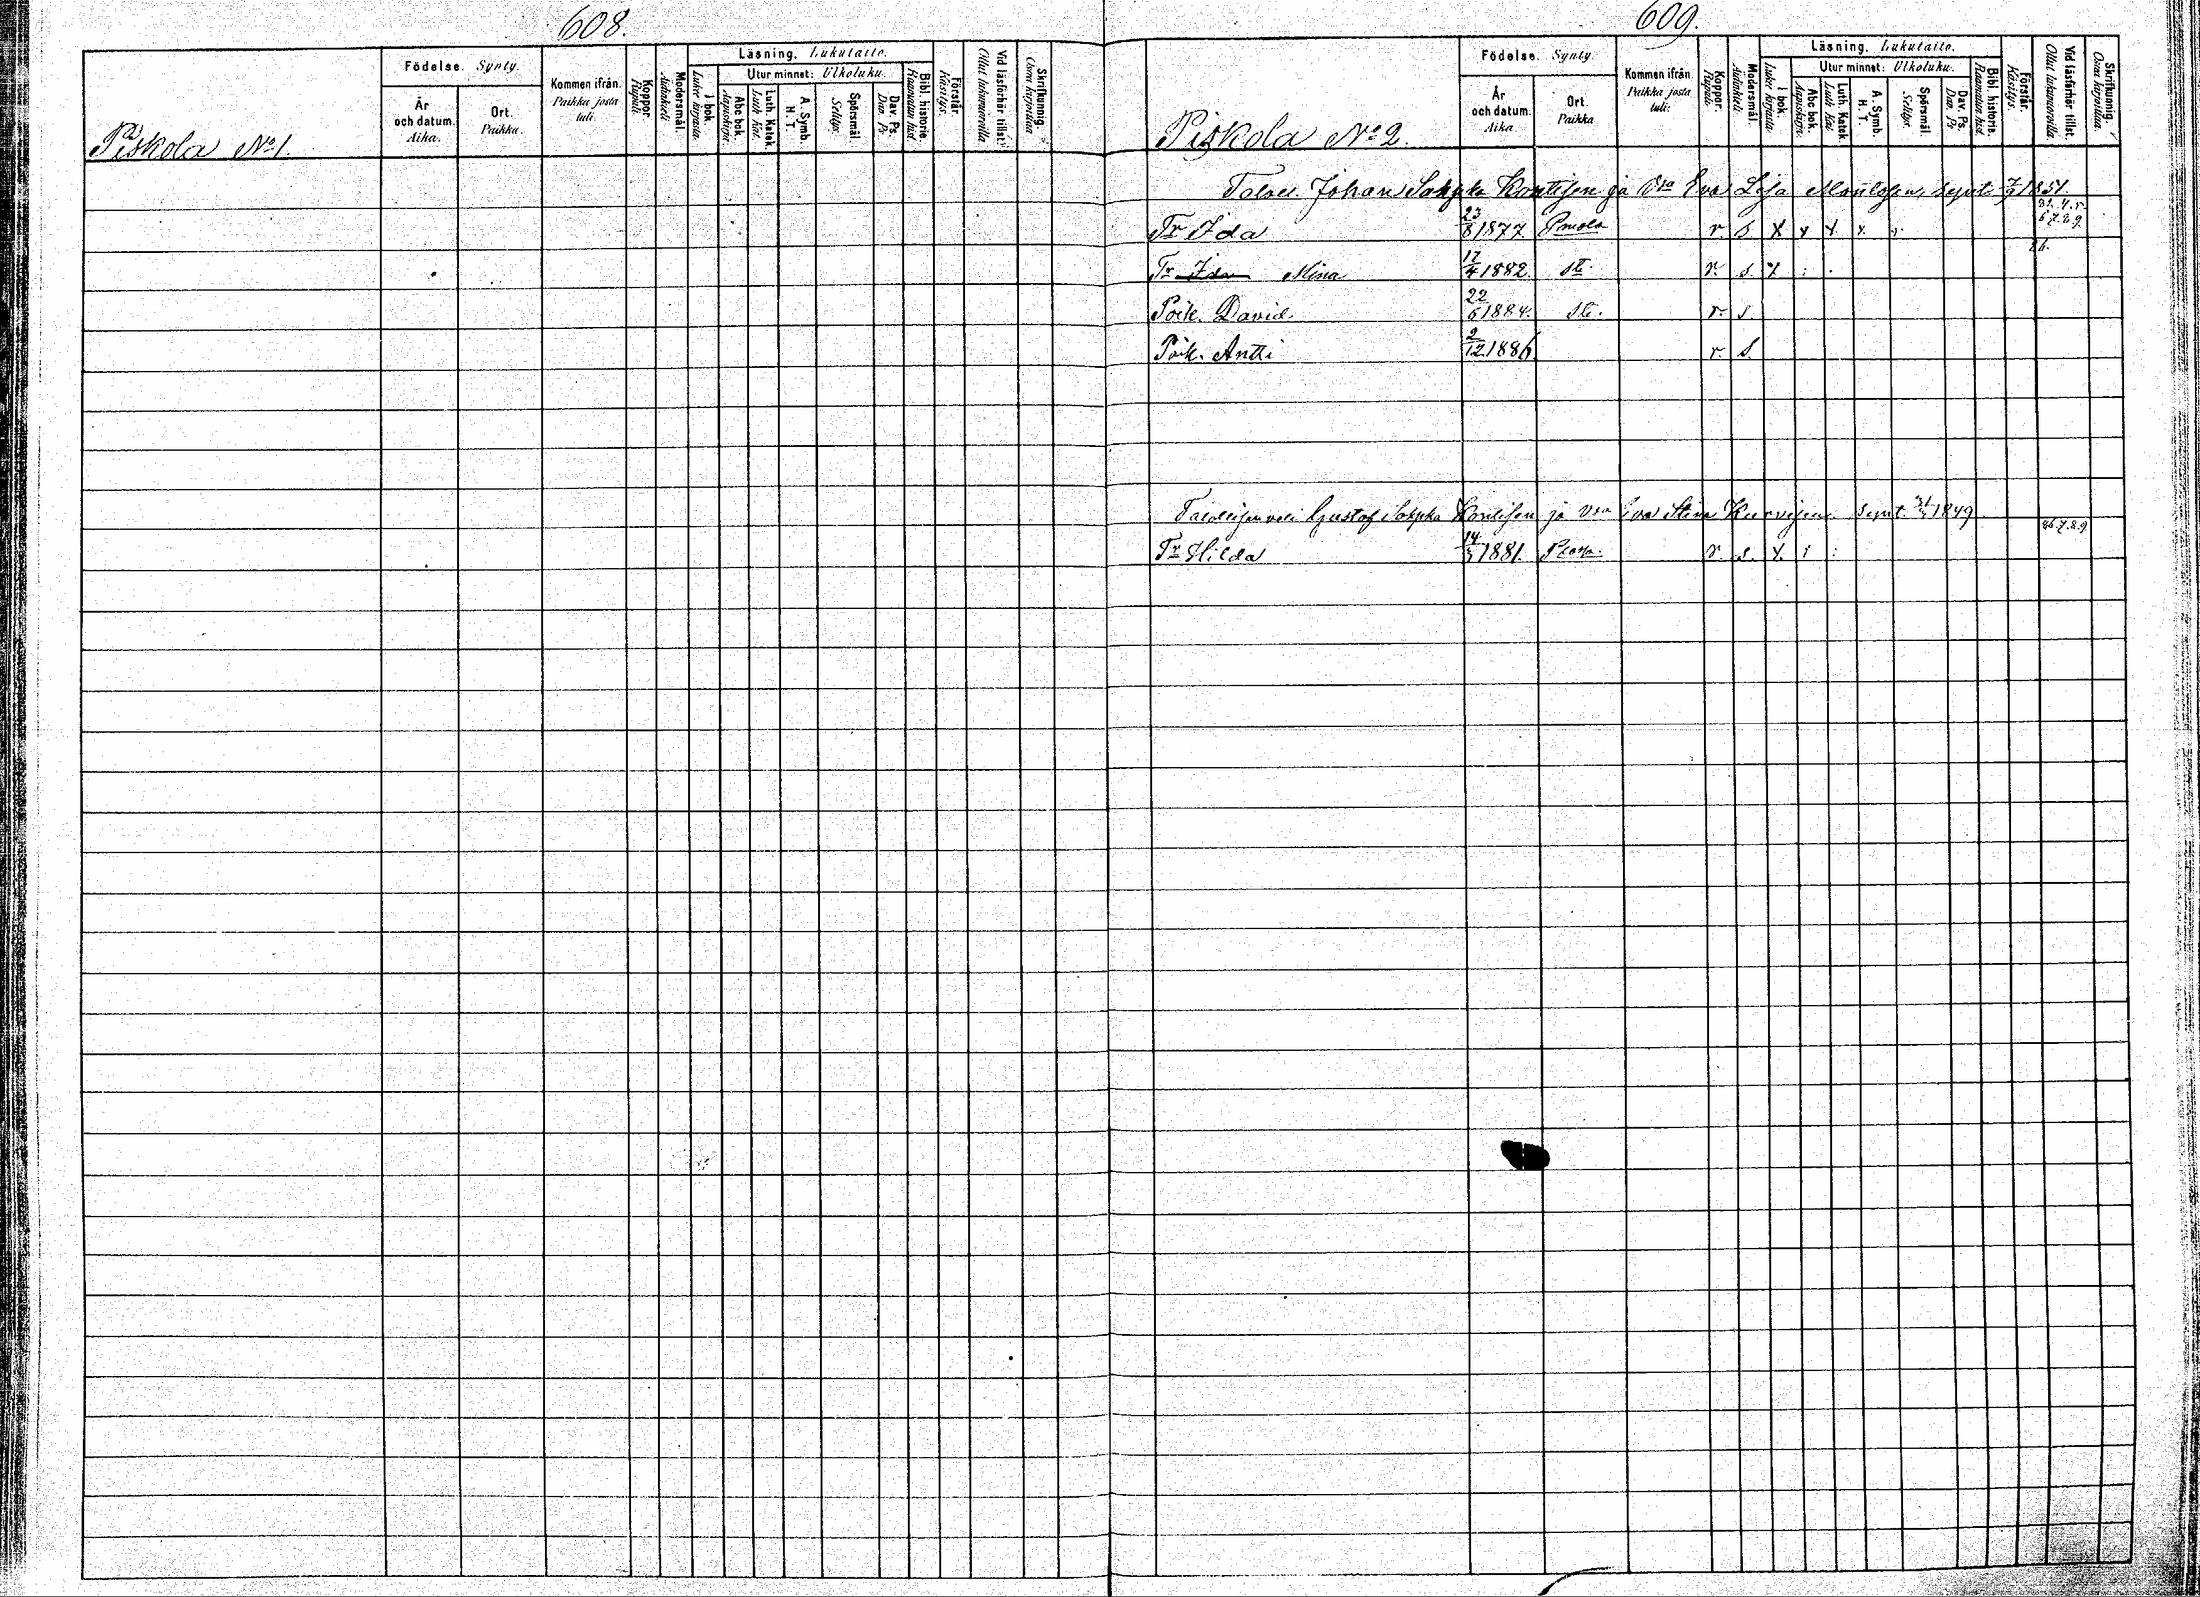 608.
Födelse. Synty.
År och datum. Aika.
Ort. Paikka.
Kommen ifrån. Paikka josta tuli.
Koppor. Rupuli.
Modersmål. Äidinkieli
Läsning. Lukutaito.
I bok. Lukee kirjasta.
Utur minnet: Ulkoluku.
Abc bok. Aapiskirja.
Luth. Katek. Luth. Kat.
A. Symb. H. T.
Spörsmål. Selitys.
Dav. Ps. Dav. Ps
Bibl. historie. Raamatun hist.
Förstår. Käsitys.
Vid läsförhör tillst. Ollut lukuvuorolla
Skrifkunnig. Osaa kirjoittaa
Piskola No 1.
609.
Födelse. Synty.
År och datum. Aika.
Ort. Paikka
Kommen ifrån. Paikka josta tuli:
Koppor. Rupuli.
Modersmål. Äidinkieli
Läsning. Lukutaito.
I bok. Lukee kirjasta.
Utur minnet: Ulkoluku.
Abc bok. Aapiskirja.
Luth. Katek. Luth. Kat
A. Symb. H. T.
Spörsmål Selitys.
Dav. Ps. Dav. Ps
Bibl. historie. Raamatun hist.
Förstår. Käsitys.
Vid läsförhör tillst. Ollut lukuvuorolla.
Skrifkunnig. Osaa kirjoittaa.
Piskola No 2.
Johan Sakpka Kontisen ja Eva Lisa synt. 1851.
Tr Ida 23/8 1877 r. s. x x x x
Tr Ida Mina 12/4 1882. r. s. x
Poik. David 22/6 1884. r. s.
Poik. Antti 2/12 1886 r. s.
Gustaf Sakpka Kontisen ja Eva Stina synt. 1849
Tr Hilda 14/3 1881. r. s. x.